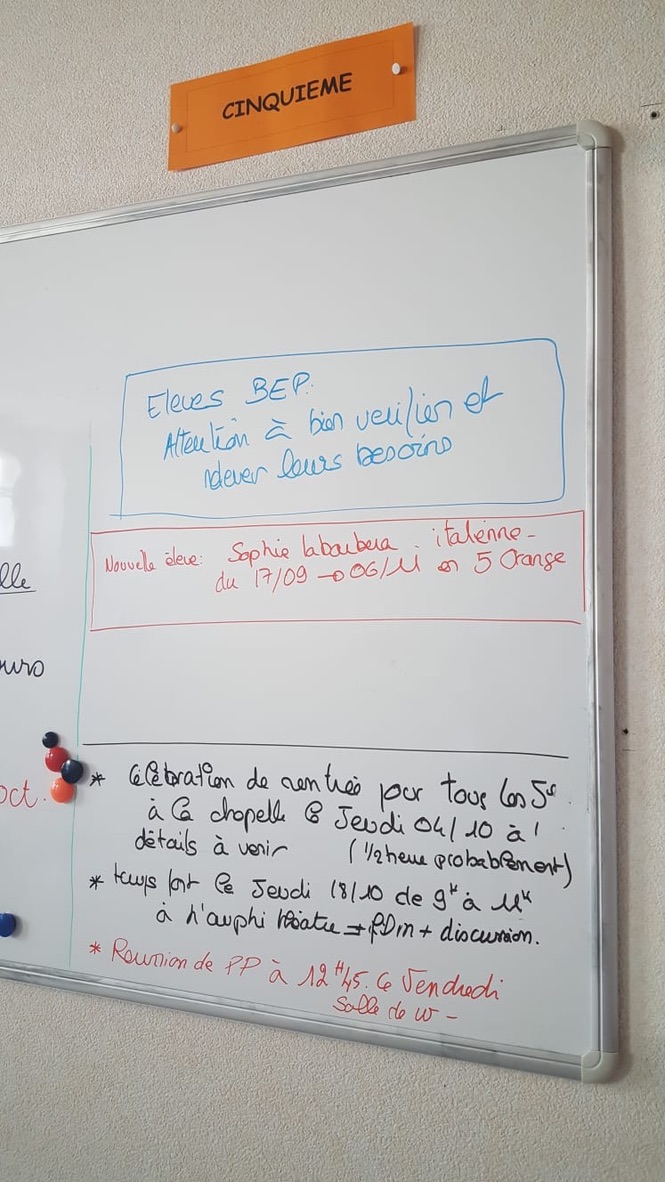 CINQUIEME
Eleves BEP:
Attention à bien verifier et
relever leurs besoins
Nouvelle élève: Sophie labarbera. italienne-
du 17/09 → 06/11 en 5 Orange
lle
ours
oct.
* Célébration de rentrée pour tous les 5e.
à la chapelle le Jeudi 04/10 à
détails à venir (1/2 heure probablement)
* temps fort le Jeudi 18/10 de 9H à 11H
à l'amphi théatre → film + discussion.
* Reunion de PP à 12H45. le Vendredi
Salle de W-